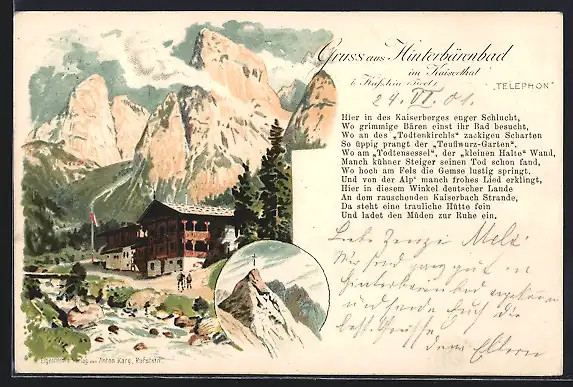 Gruss aus Hinterbärenbad
im Kaiserthal
b. Kufstein (Tirol)
„TELEPHON"
24. VI. 01.
Hier in des Kaiserberges enger Schlucht,
Wo grimmige Bären einst ihr Bad besucht,
Wo an des „Todtenkirchls" zackigen Scharten
So üppig prangt der „Teuflwurz-Garten".
Wo am „Todtensessel", der „kleinen Halte" Wand,
Manch kühner Steiger seinen Tod schon fand,
Wo hoch am Fels die Gemse lustig springt,
Und von der Alp' manch frohes Lied erklingt,
Hier in diesem Winkel deutscher Lande
An dem rauschenden Kaiserbach Strande,
Da steht eine trauliche Hütte fein
Und ladet den Müden zur Ruhe ein.
Liebe
Wir sind ganz gut in
Hinterbärenbad angekommen
und senden Euch die
besten Grüsse
Eltern
Verlag von Anton Karg, Kufstein.